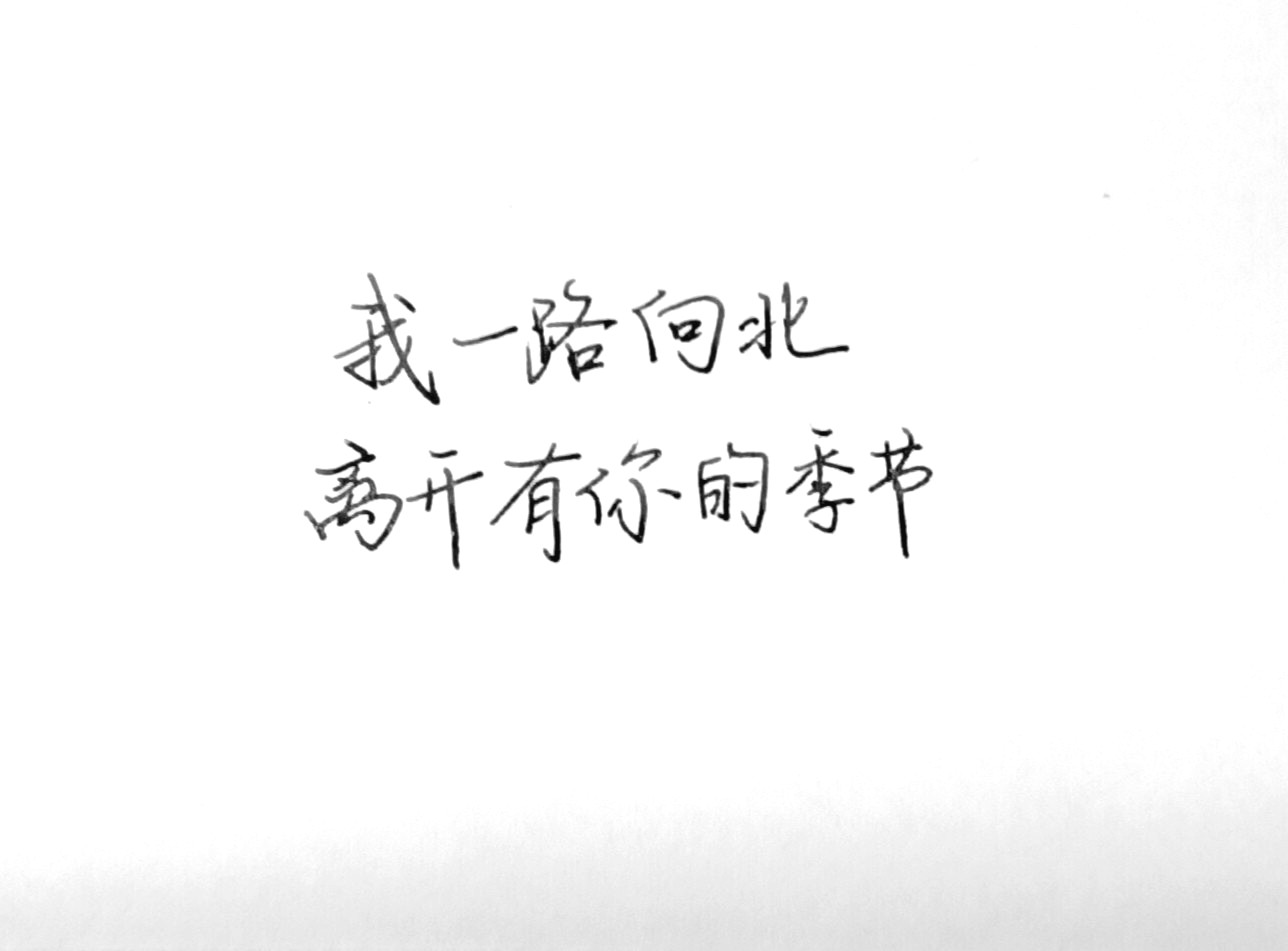 我一路向北
离开有你的季节